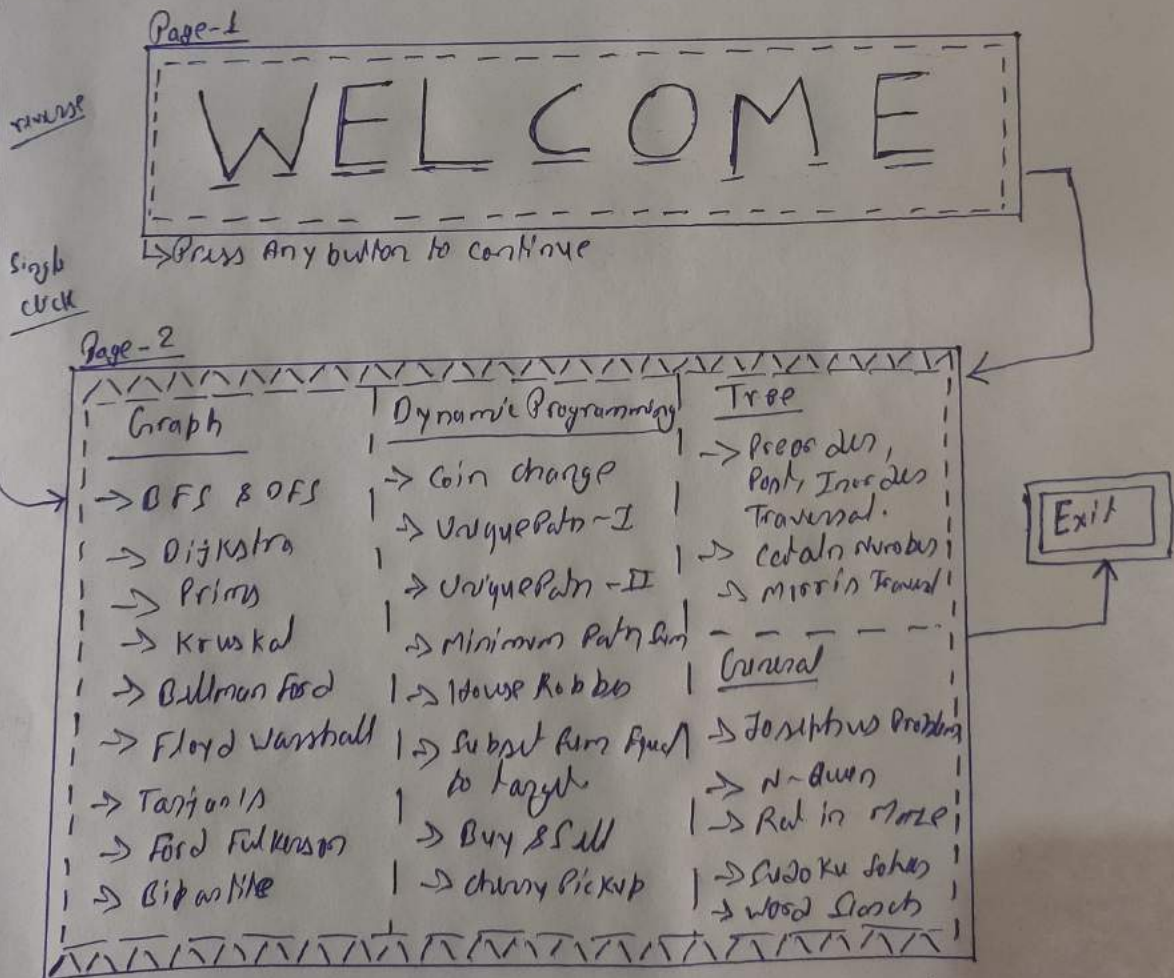 Page-1
reverse
WELCOME
Press Any button to continue
Single
click
Page-2
Graph
→ BFS & DFS
→ Dijkstra
→ Prims
→ Kruskal
→ Bellman Ford
→ Floyd Warshall
→ Tarjan's
→ Ford Fulkerson
→ Bipartite
Dynamic Programming
→ Coin change
→ Unique Path-I
→ Unique Path-II
→ Minimum Path Sum
→ House Robber
→ Subset Sum Equal
to target
→ Buy & Sell
→ Cherry Pickup
Tree
→ Preorder,
Post, Inorder
Traversal.
→ Cataln Number
→ Morris Traversal
General
→ Josephus Problem
→ N-Queen
→ Rat in Maze
→ Sudoku Solver
→ Word Search
Exit